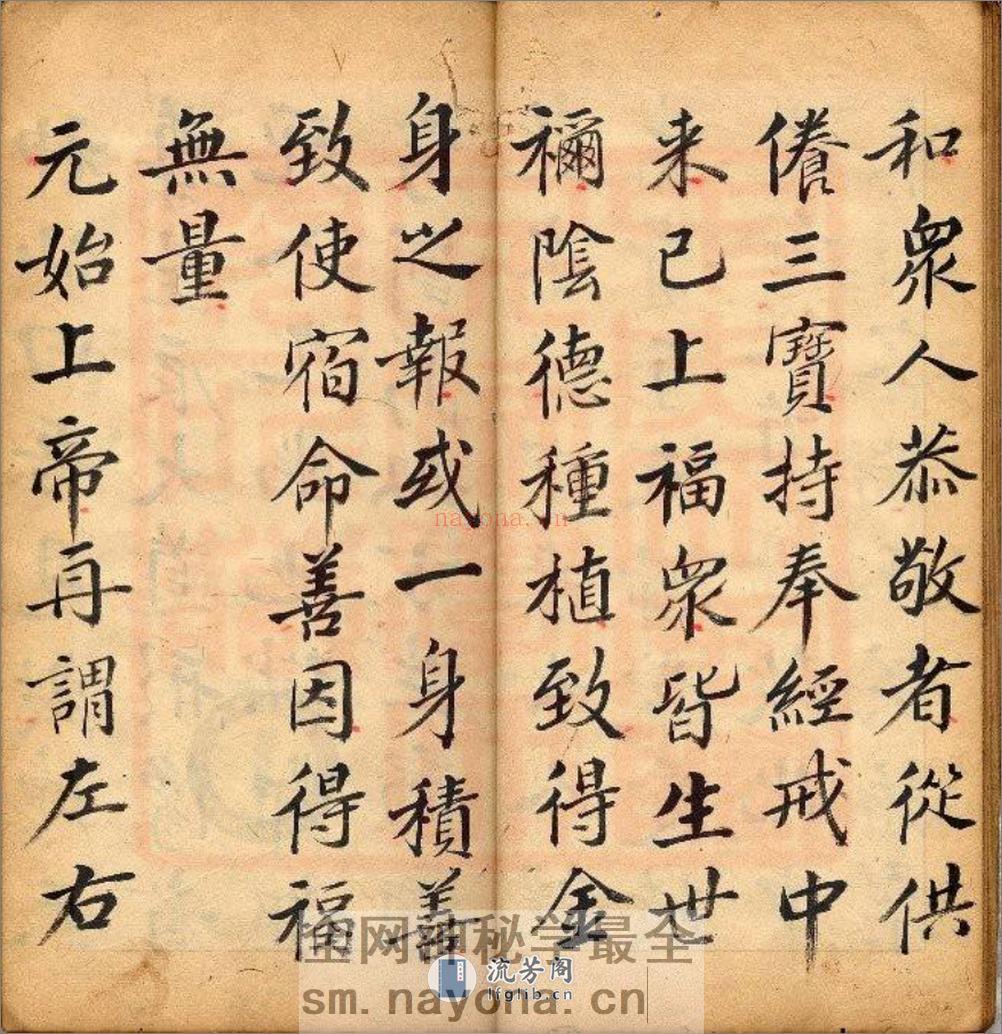 和眾人恭敬者從供
養三寶持奉經戒中
来已上福眾皆生世
禰陰德種植致得金
身之報或一身積善
致使宿命善因得福
無量
元始上帝再謂左右
nayona.cn
全网神秘学最全
流芳阁
lfglib.cn
sm.nayona.cn